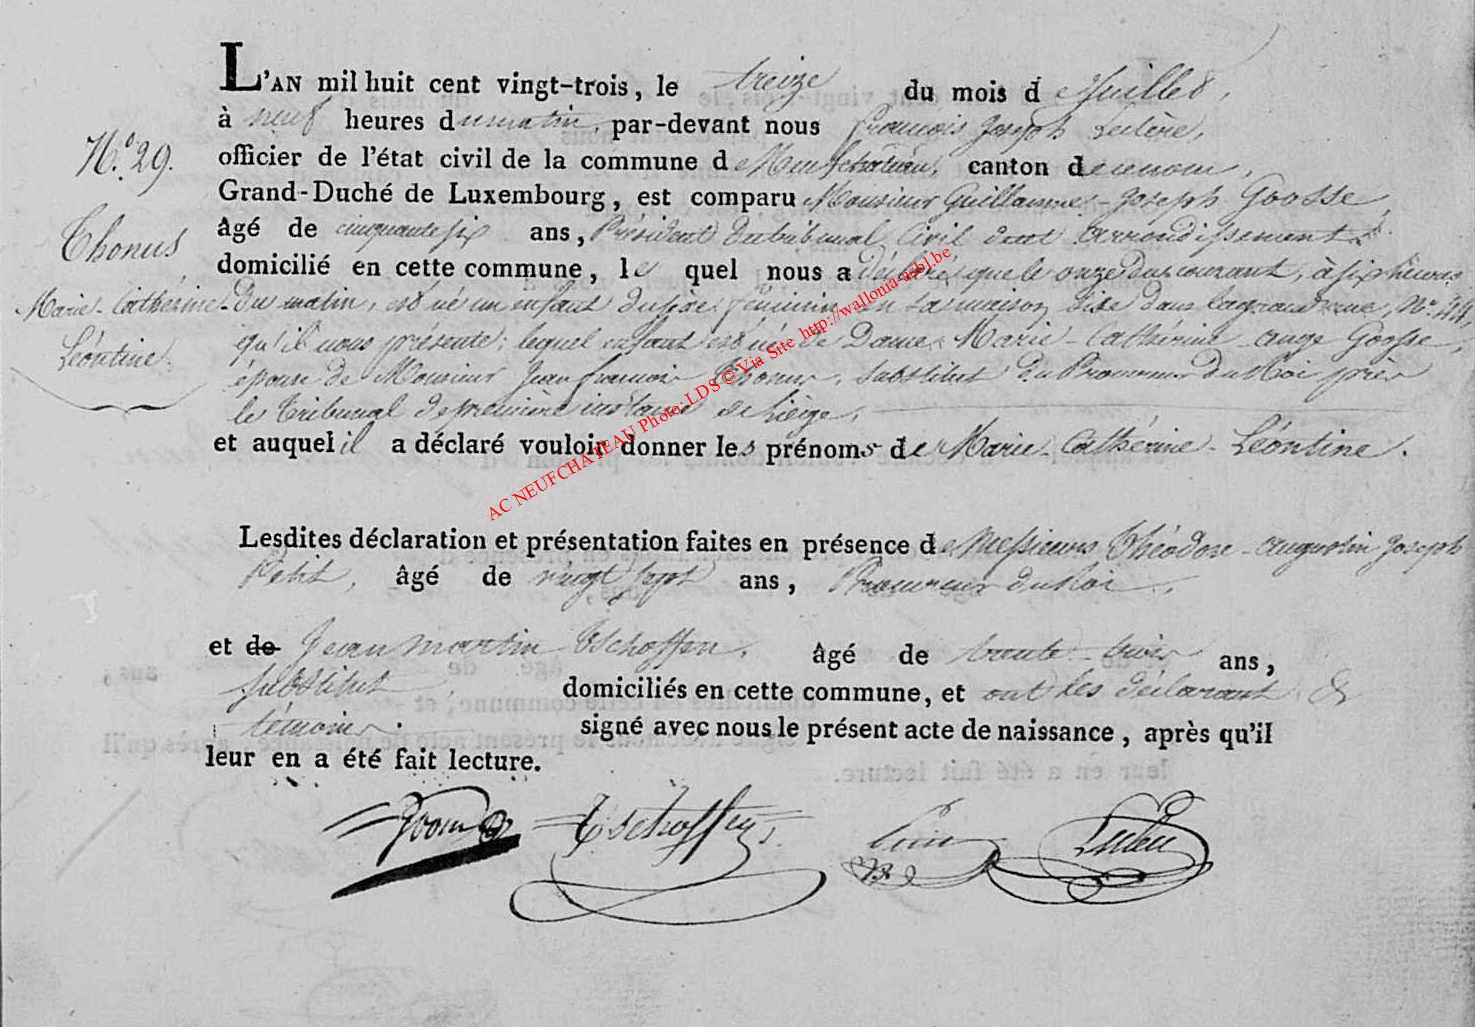 L'AN mil huit cent vingt-trois, le treize du mois de Juillet,
à neuf heures du matin, par-devant nous françois Joseph Leclère,
N.º 29.
officier de l'état civil de la commune de Neufchâteau, canton de ce nom,
Grand-Duché de Luxembourg, est comparu Monsieur Guillaume-Joseph Gosse,
Thonus
âgé de cinquante six ans, Président du tribunal Civil dudit arrondissement
domicilié en cette commune, lequel nous a déclaré que le onze du courant, à six heures
Marie-Cathérine-
du matin, est né un enfant du sexe féminin en sa maison sise dans la grand rue, Nº 44,
qu'il nous présente; lequel enfant est né de Dame Marie-Cathérine ange Gosse,
Léontine.
épouse de Monsieur Jean françois Thonus, Substitut du Procureur du Roi près
le Tribunal de première instance de Liège,
et auquel il a déclaré vouloir donner les prénoms de Marie-Cathérine-Léontine.
Lesdites déclaration et présentation faites en présence de Messieurs Théodore-augustin-Joseph
Petit, âgé de vingt sept ans, Procureur du Roi,
et de Jean martin Tschoffen, âgé de trente-trois ans,
Substitut, domiciliés en cette commune, et ont les déclarant &
témoins. signé avec nous le présent acte de naissance, après qu'il
leur en a été fait lecture.
Tschoffen
AC NEUFCHATEAU Photo: LDS © Via Site http://wallonia-asbl.be